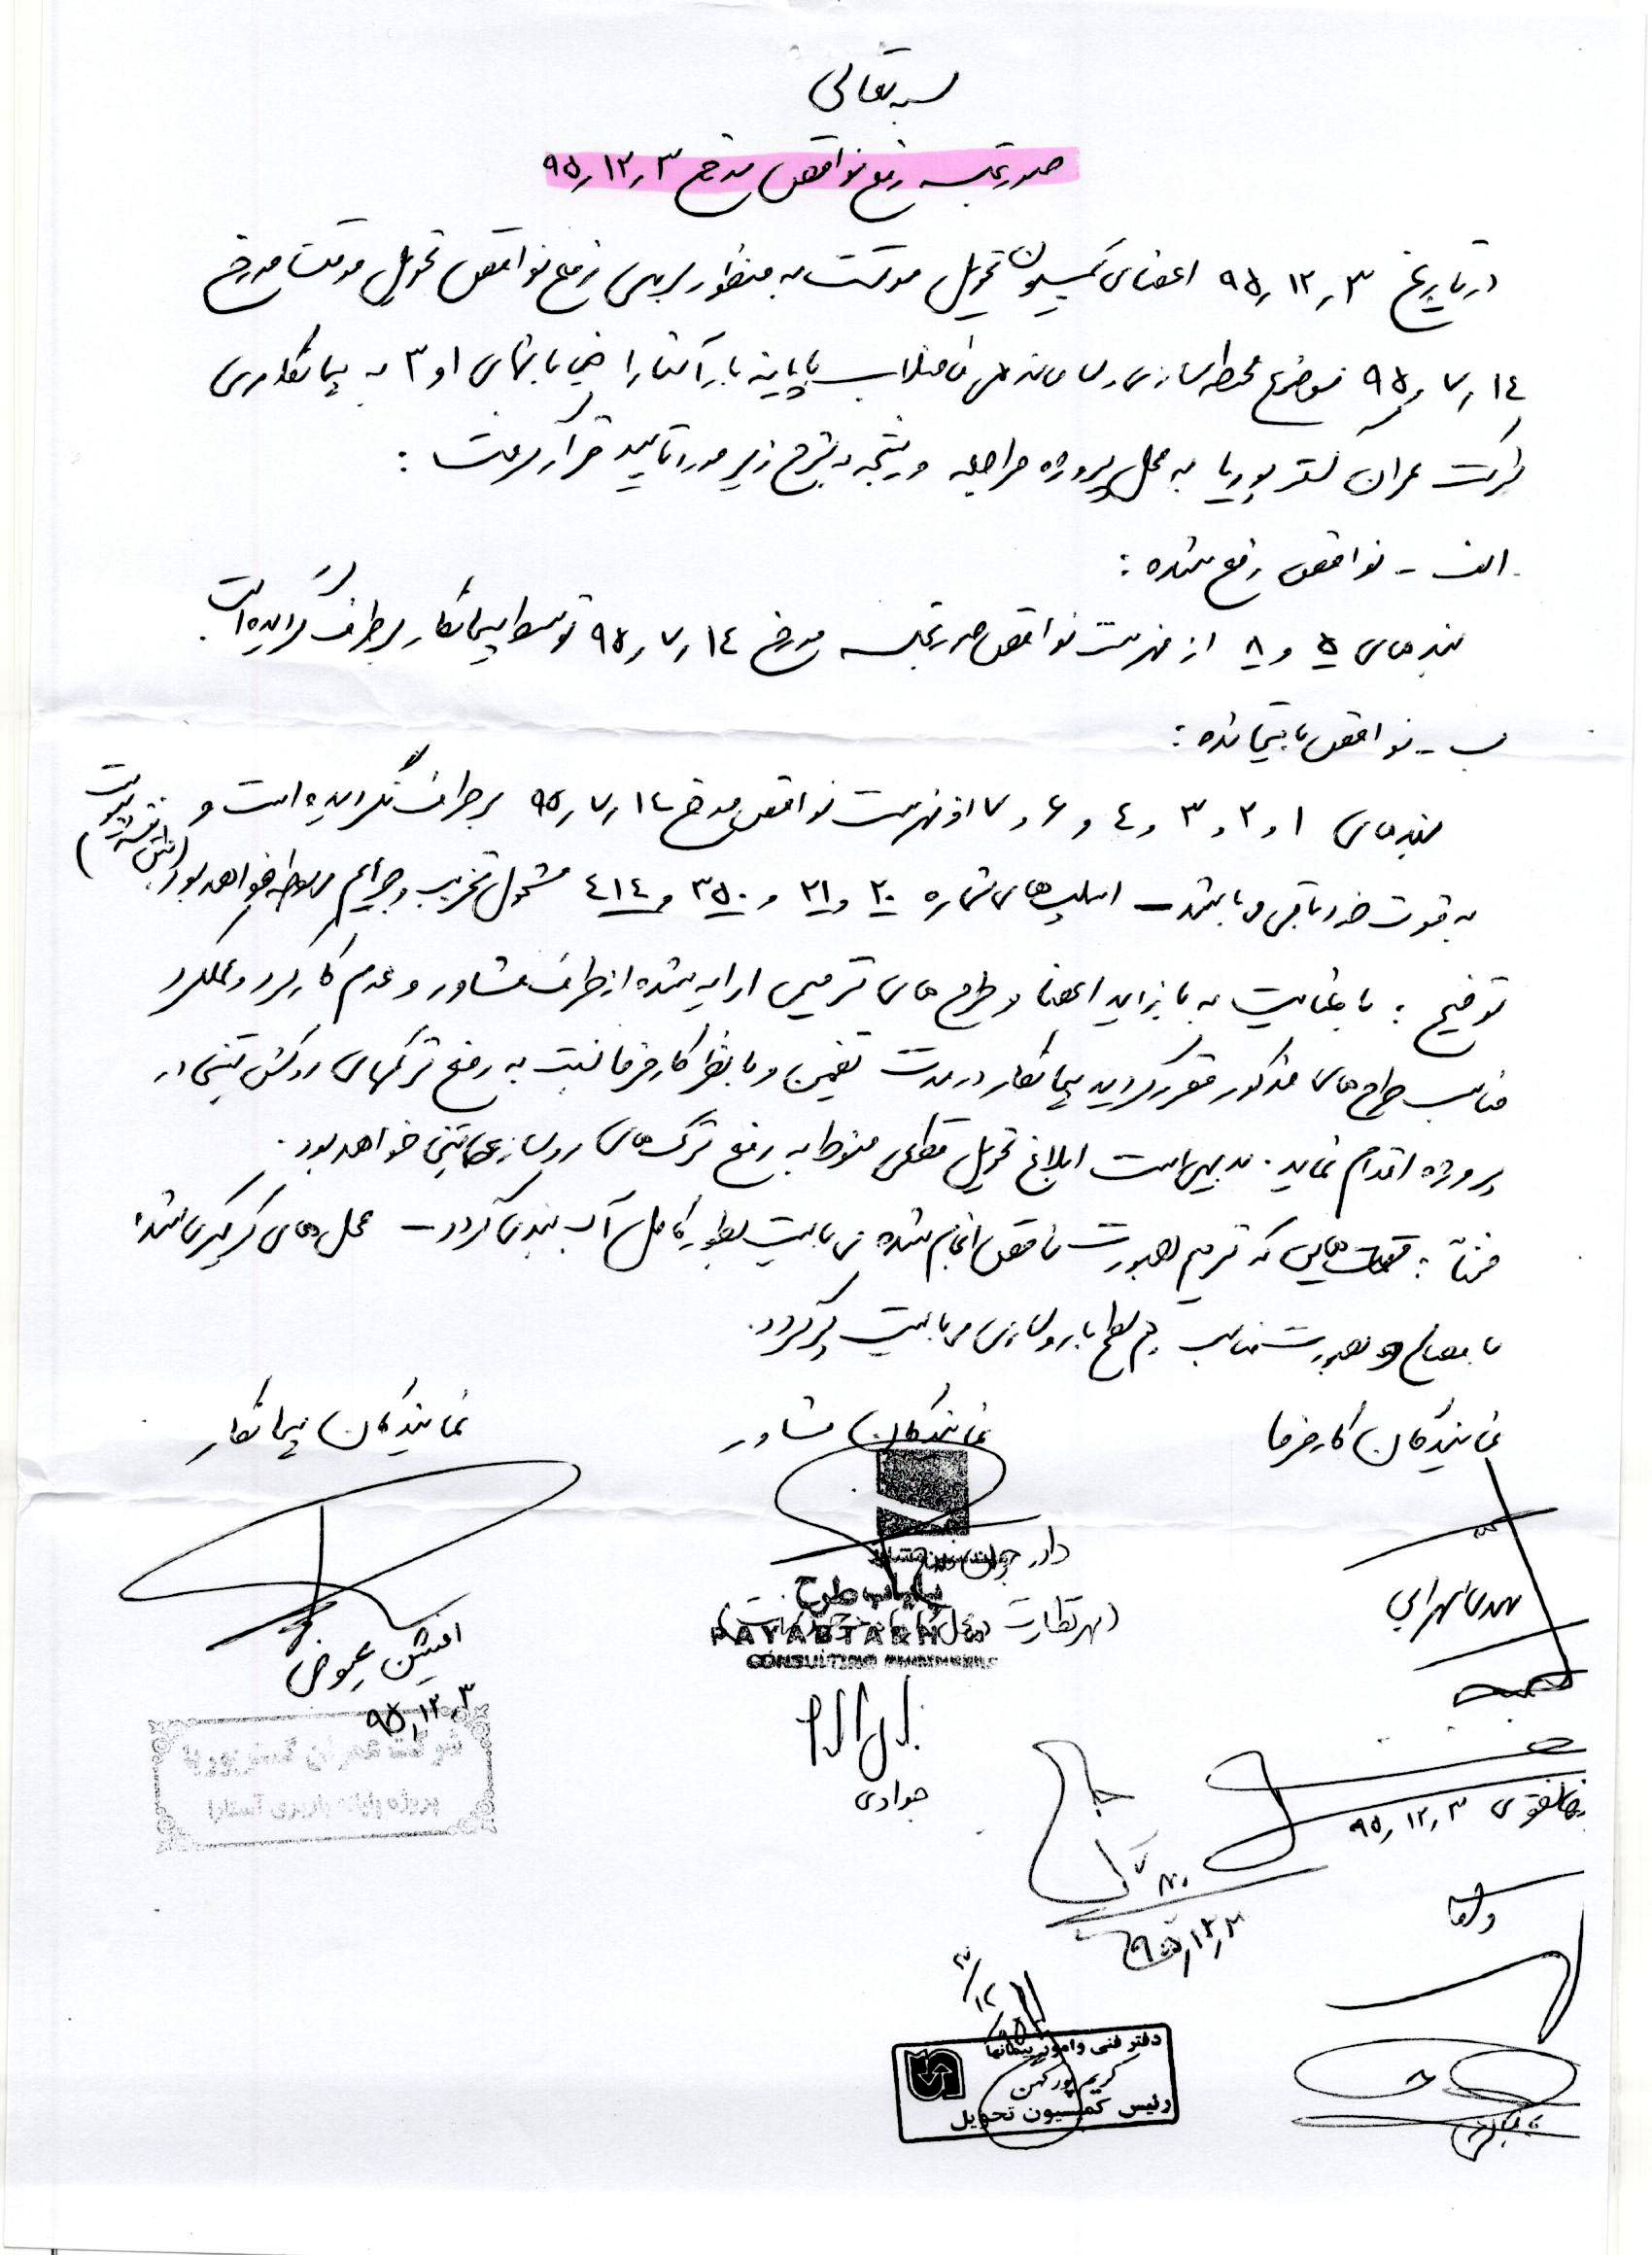 بسمه تعالی
صورتجلسه رفع نواقص مورخ ۹۵٫۱۲٫۳
در تاریخ ۹۵٫۱۲٫۳ اعضای کمیسیون تحویل موقت به منظور بررسی رفع نواقص تحویل موقت مورخ
۹۵٫۷٫۱۴ موضوع محطه سازی و ساماندهی فاضلاب پایانه بار آستارا فی مابین ۱ و ۳ به پیمانکاری
شرکت عمران گستر پوریا به محل پروژه مراجعه و نتیجه بشرح زیر مورد تایید قرار گرفت :
الف - نواقص رفع شده :
بندهای ۵ و ۸ از فهرست نواقص صورتجلسه مورخ ۹۵٫۷٫۱۴ توسط پیمانکار برطرف گردیده است.
ب - نواقص باقیمانده :
بندهای ۱ و ۲ و ۳ و ۴ و ۶ و ۷ از فهرست نواقص مورخ ۹۵٫۷٫۱۴ برطرف نگردیده است و
به قوت خود باقی می باشد - اسلب های شماره ۲۰ و ۲۱ و ۳۵۰ و ۴۱۴ مشمول تخریب و جرایم مربوطه خواهد بود. (طبق نقشه پیوست)
توضیح : با عنایت به بازدید اعضا و طرح های ترمیمی ارایه شده از طرف مشاور و عدم کارکرد و عملکرد
مناسب طرح های مذکور مقرر گردید پیمانکار در مدت تضمین و با نظر کارفرما نسبت به رفع ترکهای روکش بتنی در
پروژه اقدام نماید. بدیهی است ابلاغ تحویل قطعی منوط به رفع ترک های روسازی بتنی خواهد بود.
ضمناً : قسمت هایی که ترمیم بصورت ناقص انجام شده می بایست بطور کامل آب بندی گردد - محل های کرگیری شده
با مصالح و بصورت مناسب هم سطح با روسازی می بایست پر گردد.
نمایندگان کارفرما
نمایندگان مشاور
نمایندگان پیمانکار
مهدی سهرابی
۹۵٫۱۲٫۳
پایاب طرح
PAYABTARH
CONSULTING ENGINEERS
جوادی
افشین عیوضی
۹۵٫۱۲٫۳
شرکت عمران گستر پوریا
پروژه پایانه باربری آستارا
۹۵٫۱۲٫۳
۹۵/۱۲/۳
دفتر فنی و امور پیمانها
کریم پور کهن
رئیس کمیسیون تحویل